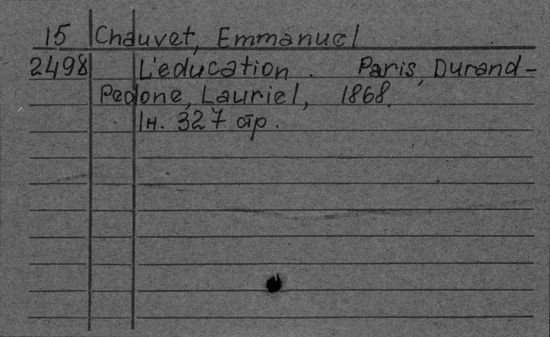 15 Chauvet, Emmanuel
2498 L'education. Paris, Durand-
Pedone, Lauriel, 1868,
Iн. 327 стр.